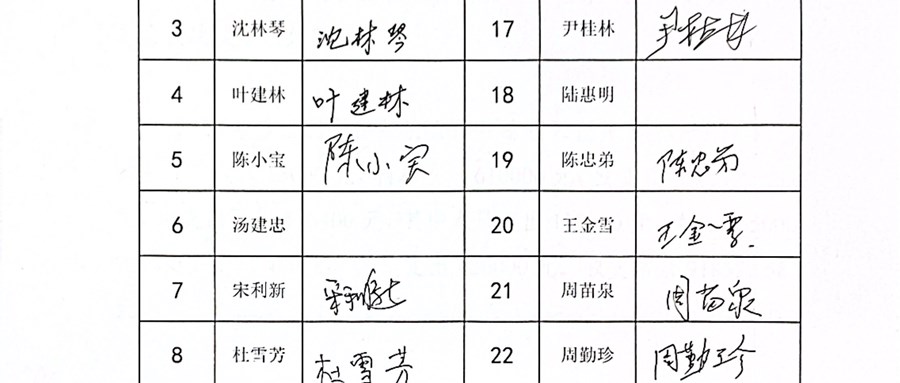 3 沈林琴 沈林琴 17 尹桂林 尹桂林
4 叶建林 叶建林 18 陆惠明
5 陈小宝 陈小宝 19 陈忠弟 陈忠弟
6 汤建忠 20 王金雪 王金雪
7 宋利新 21 周苗泉 周苗泉
8 杜雪芳 杜雪芳 22 周勤珍 周勤珍